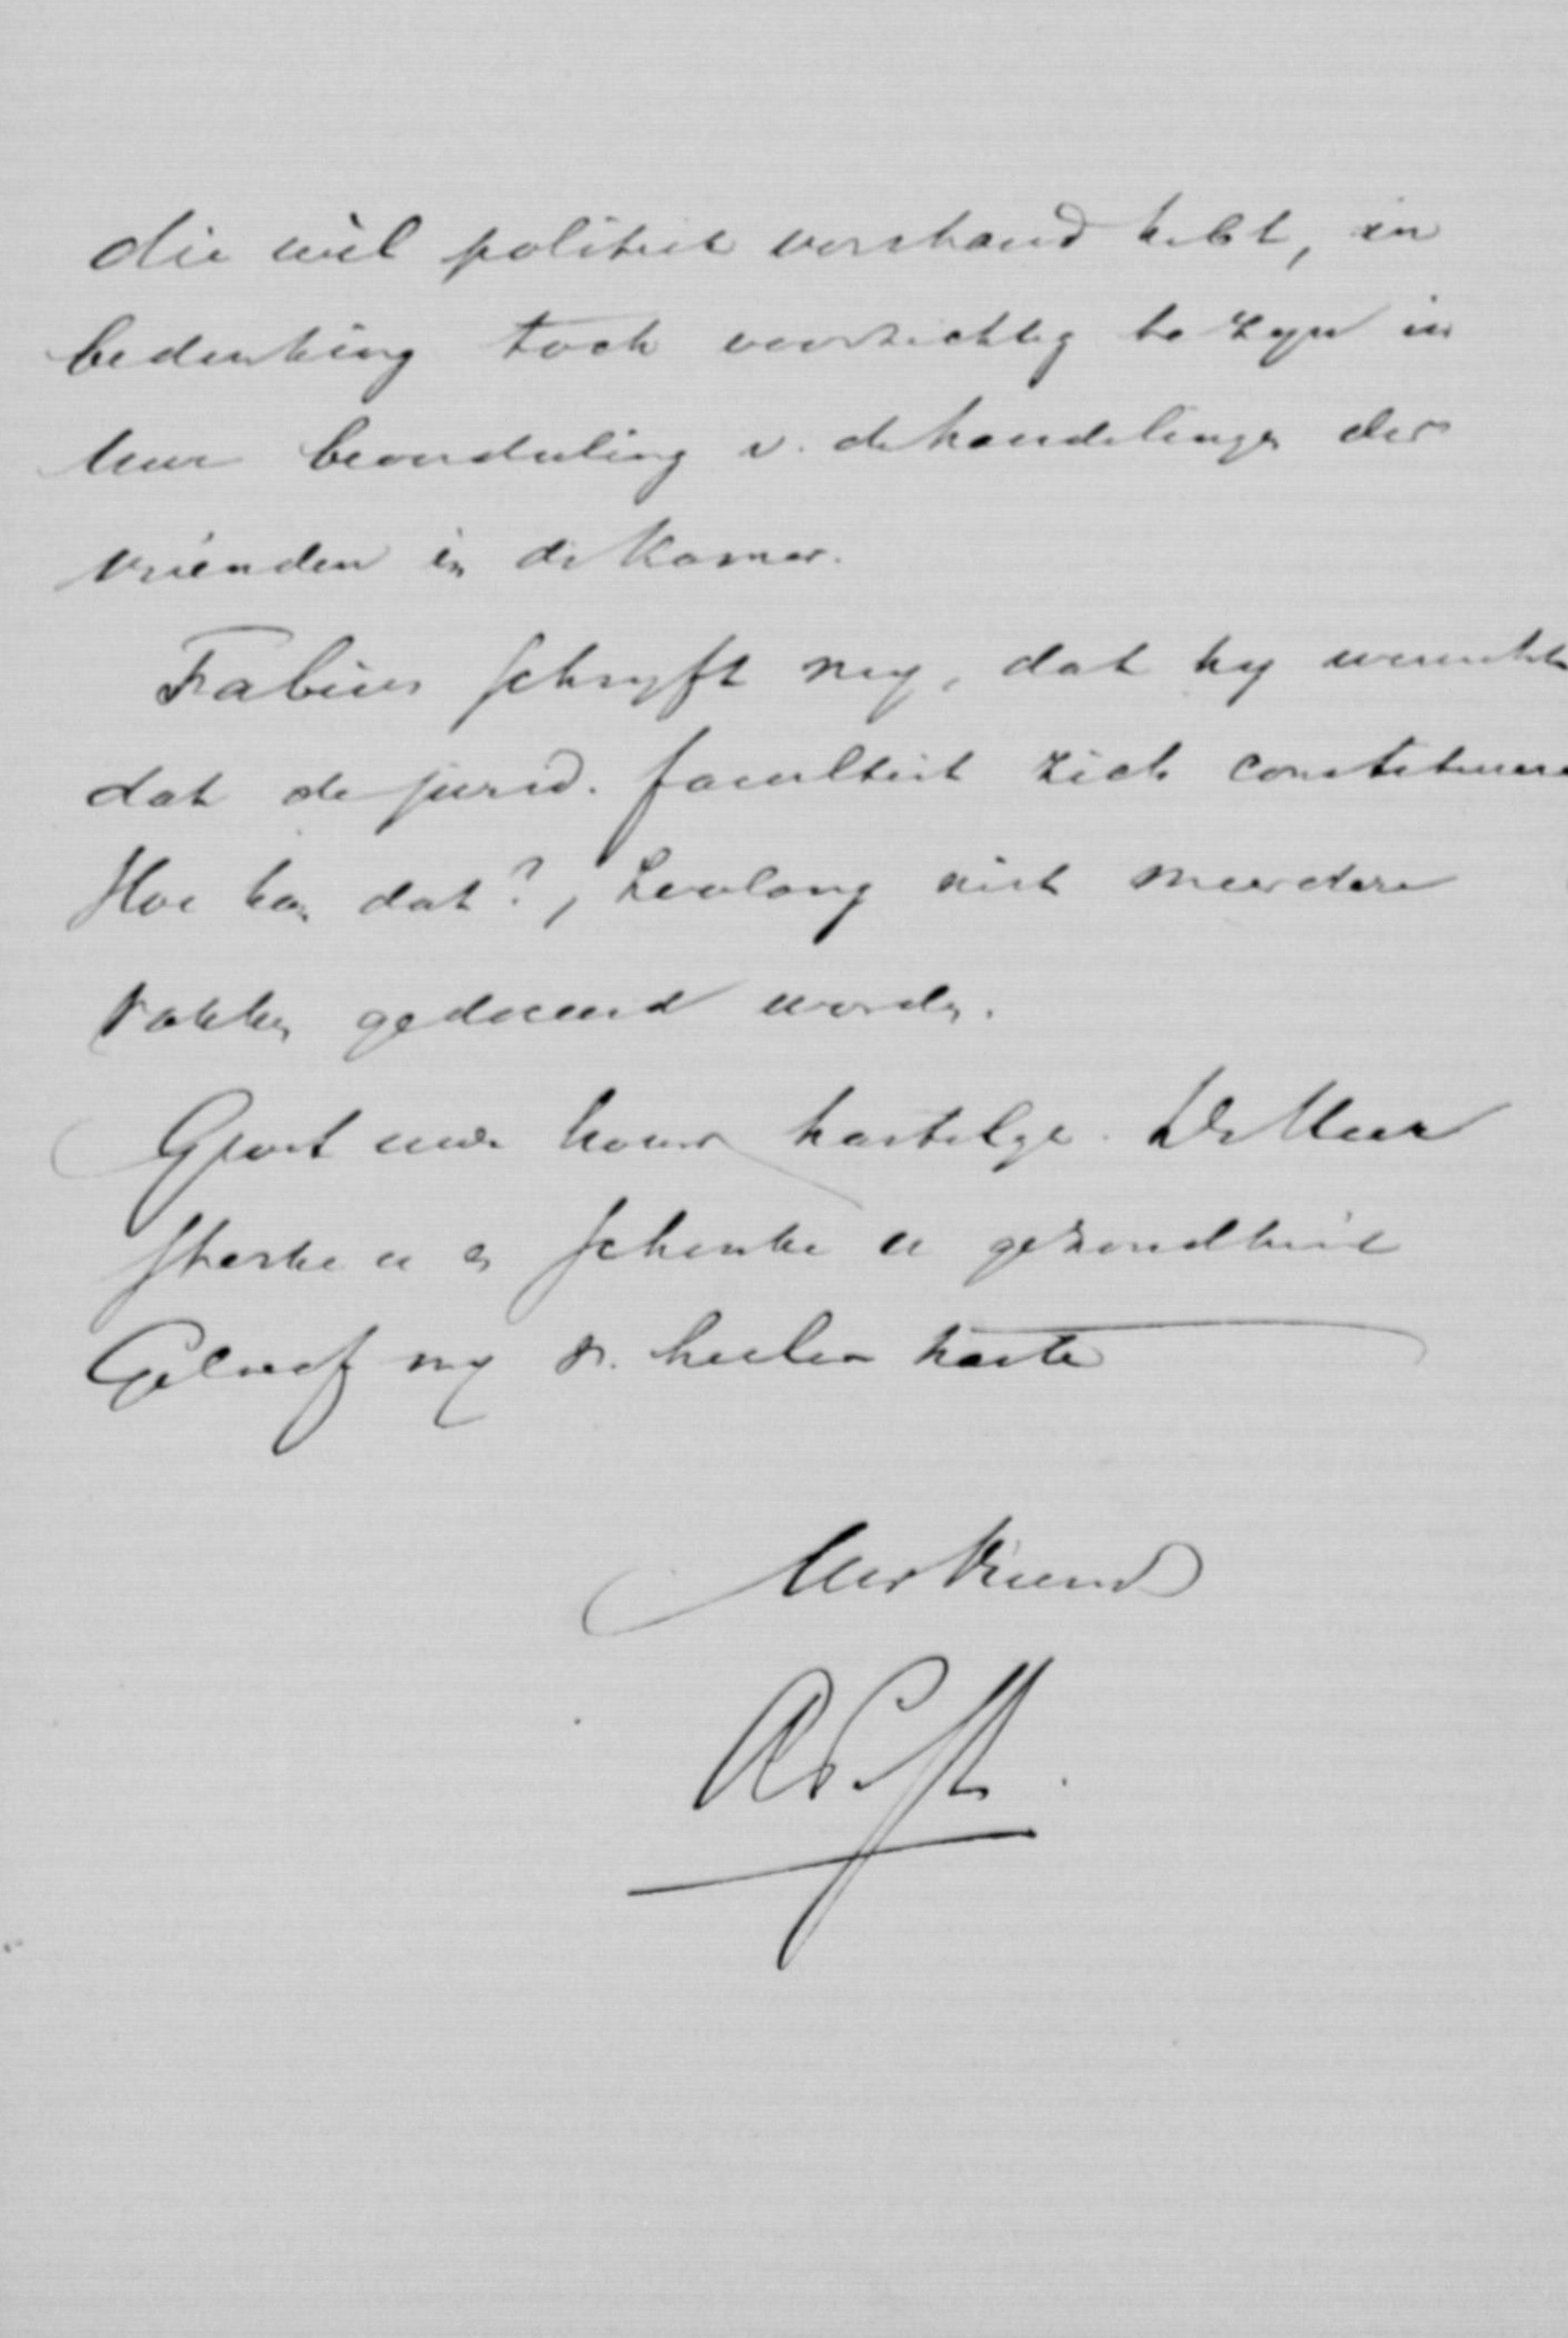 die wèl politiek verstand hebt, in
bedenking toch voorzichtig te zyn in
Uwe beoordeeling v. de handelingen der
vrienden in de Kamer.
Fabius schryft my, dat hy wenscht
dat de jurid. faculteit zich constitueere
Hoe kan dat?, zoolang niet meerdere
vakken gedoceerd worden.
Groet uwe vrouw hartelyk. De Heer
sterke u en schenke u gezondheid
Geloof my v. heeler harte
Uw Vriend